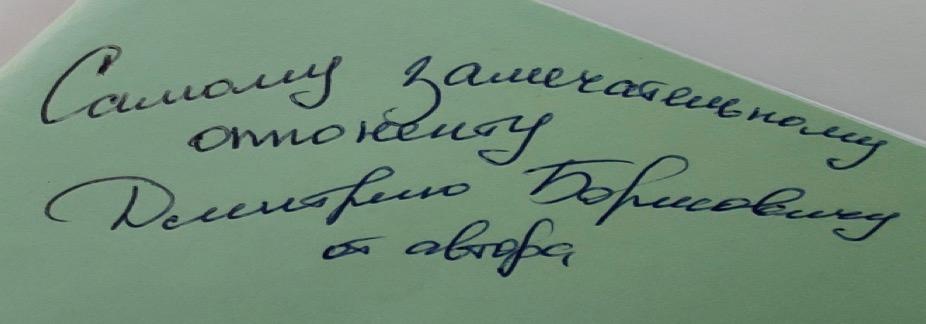 Самому замечательному
оппоненту
Дмитрию Борисовичу
от автора